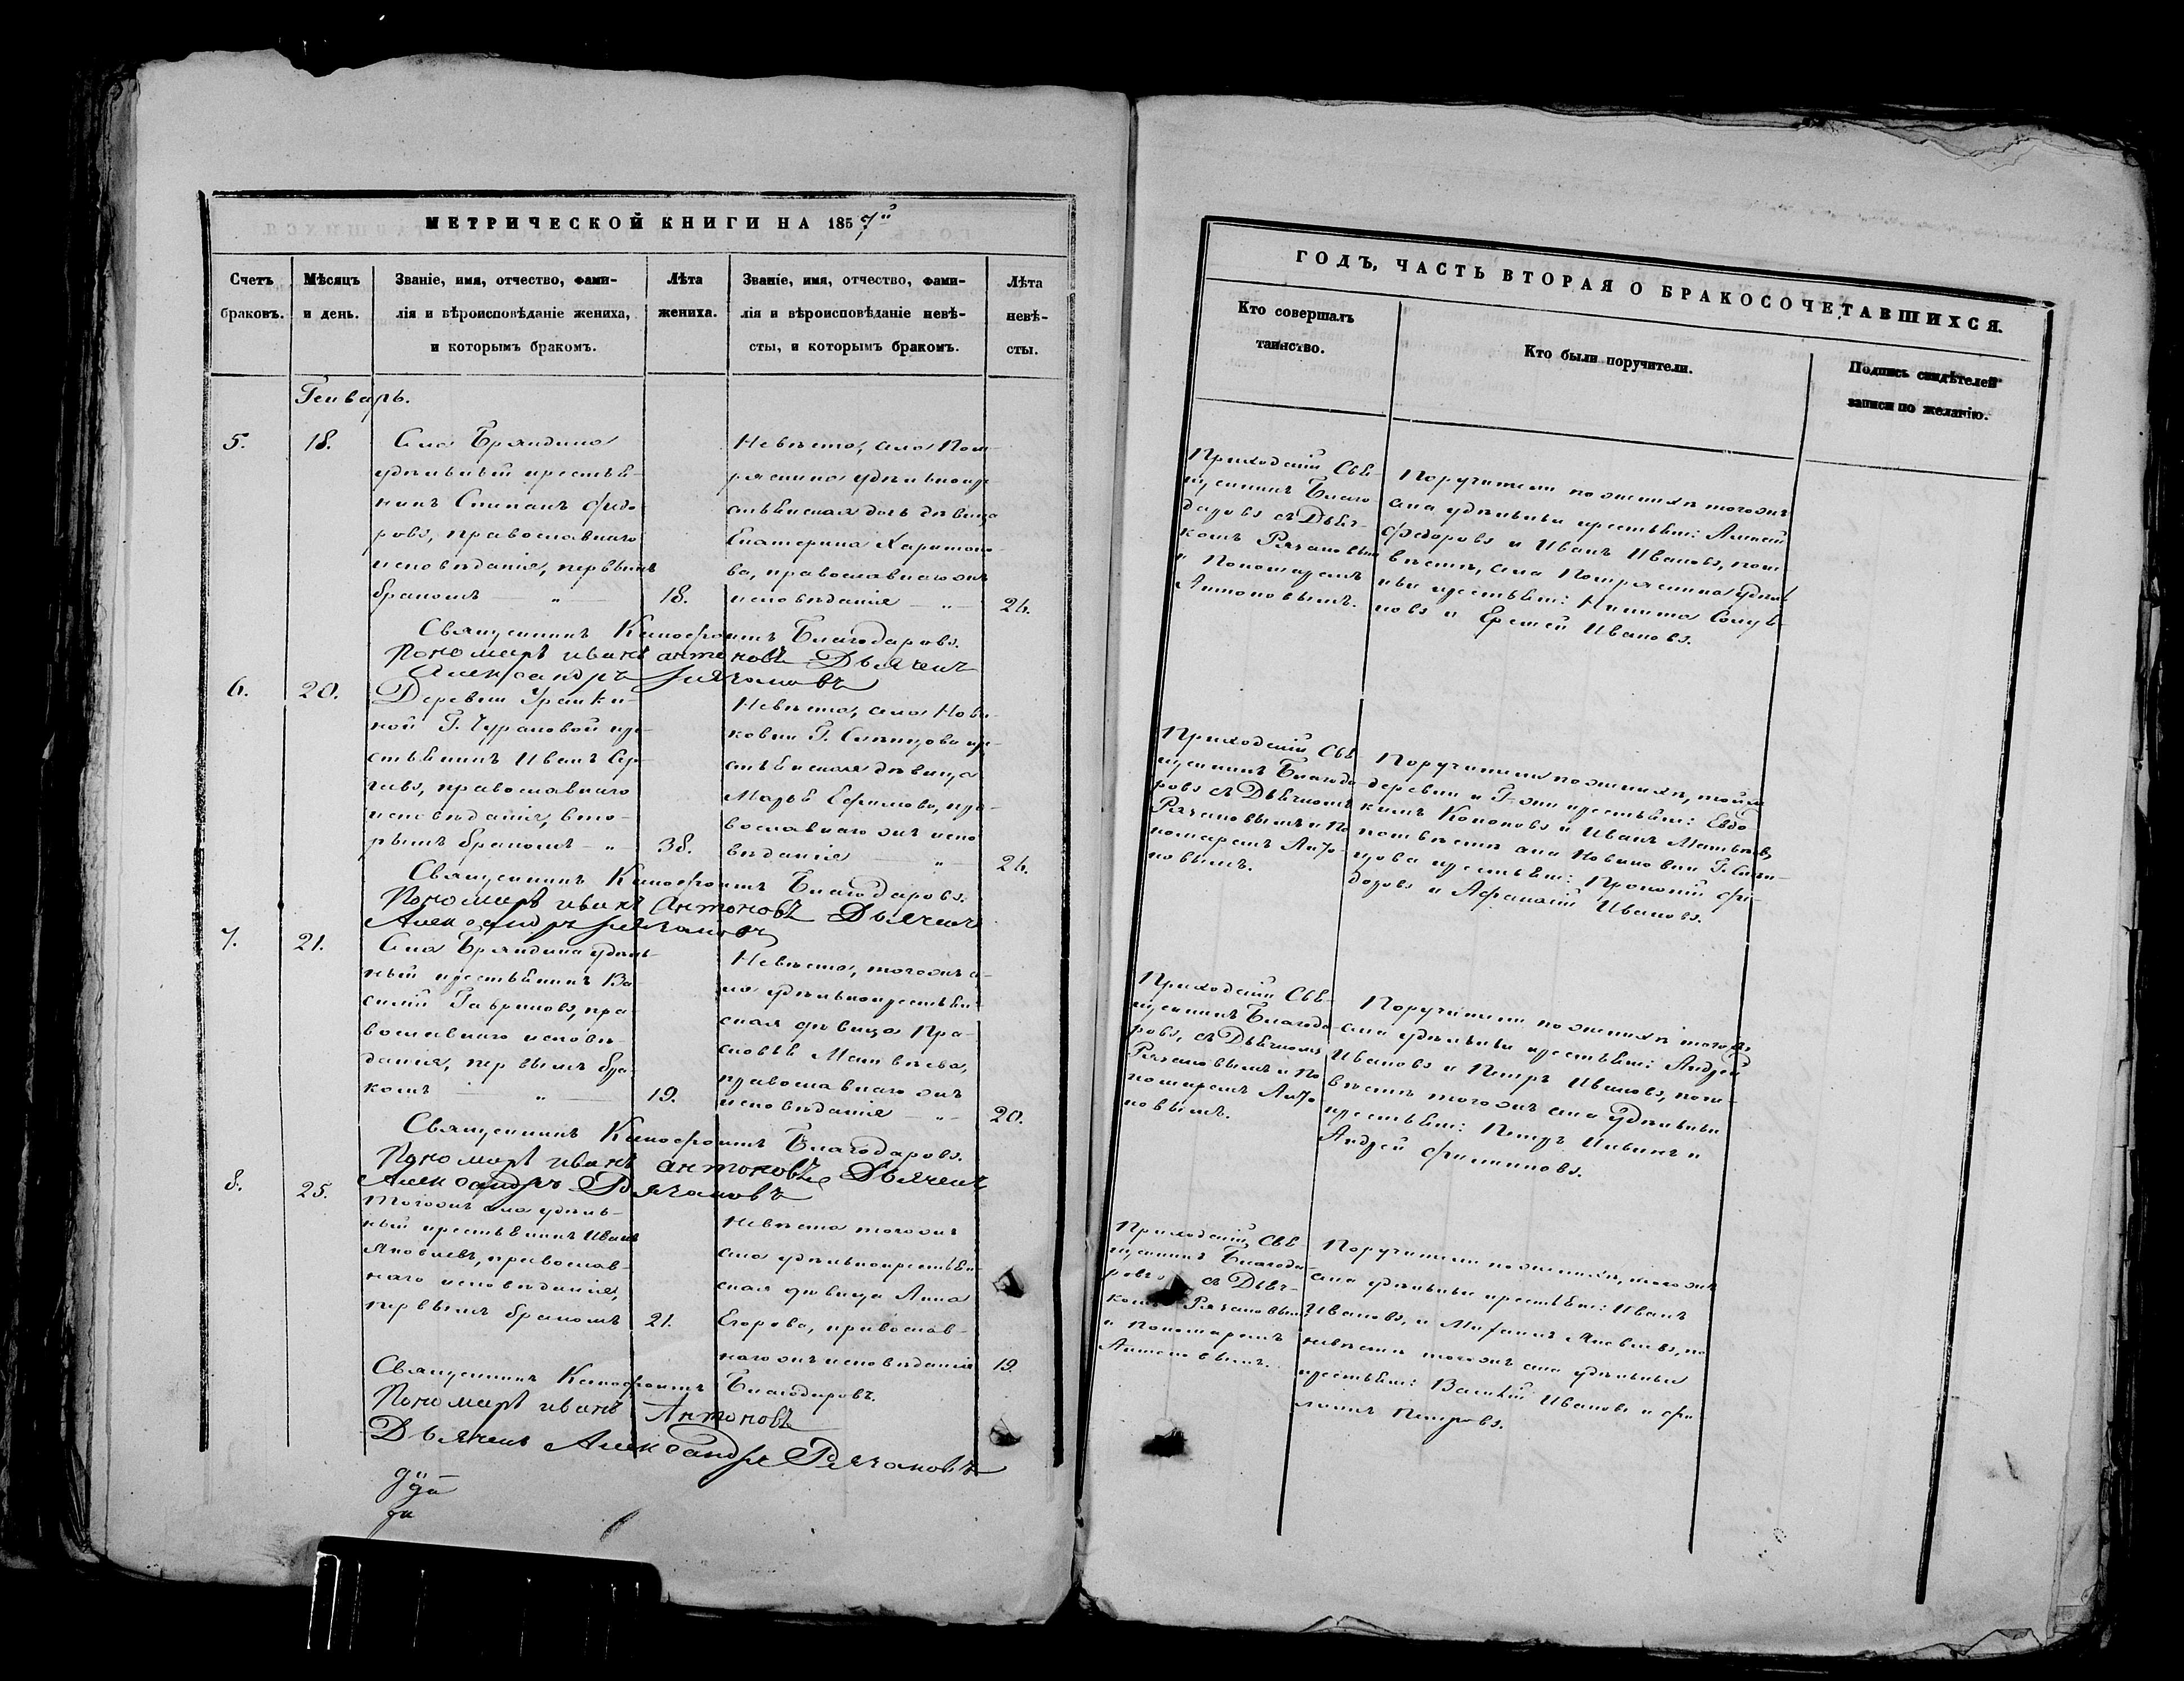 МЕТРИЧЕСКОЙ КНИГИ НА 1857й
Счетъ браковъ.
Мѣсяцъ и день.
Званіе, имя, отчество, фами-
лія и вѣроисповѣданіе жениха,
и которымъ бракомъ.
Лѣта жениха.
Званіе, имя, отчество, фами-
лія и вѣроисповѣданіе невѣ-
сты, и которымъ бракомъ.
Лѣта невѣ-
сты.
Генварь.
5.
18.
Села Бряндина
удѣльный крестьѧ-
нинъ Степанъ Федо-
ровъ, православнаго
исповѣданія, первымъ
бракомъ — „ —
18.
Невѣста, села
удѣльнокре-
стьѧнская дочь дѣвица
Екатерина Харитоно-
ва, православнагожъ
исповѣданія — „ —
24.
Священникъ Ксенофонтъ Благодаровъ.
Пономарь иванъ антоновъ Дьячекъ
Александръ Рязановъ
6.
20.
Деревни
ной Г. Чурановой кре-
стьѧнинъ Иванъ Сер-
гѣевъ, православнаго
исповѣданія, вто-
рымъ бракомъ — „ —
38.
Невѣста, села Нови-
ковки Г. кре-
стьѧнская дѣвица
Марьѧ Ефимова, пра-
вославнагожъ испо-
вѣданія — „ —
24.
Священникъ Ксенофонтъ Благодаровъ.
Пономарь иванъ Антоновъ Дьячекъ
Александръ Рязановъ
7.
21.
Села Бряндина удѣль-
ный крестьѧнинъ Ва-
силій Гавриловъ, пра-
вославнаго исповѣ-
данія, первымъ бра-
комъ — „ —
19.
Невѣста, тогожъ се-
ла удѣльнокрестьѧн-
ская дѣвица Пра-
сковьѧ Матвѣева,
православнагожъ
исповѣданія „ —
20.
Священникъ Ксенофонтъ Благодаровъ.
Пономарь иванъ антоновъ Дьячекъ
Александръ Рязановъ
8.
25.
Тогожъ села удѣль-
ный крестьѧнинъ Иванъ
Яковлевъ, православ-
наго исповѣданія,
первымъ бракомъ
21.
Невѣста тогожъ
села удѣльнокрестьѧн-
ская дѣвица Анна
Егорова, православ-
нагожъ исповѣданія
19.
Священникъ Ксенофонтъ Благодаровъ.
Пономарь иванъ Антоновъ
Дьячекъ Александръ Рязановъ
ГОДЪ, ЧАСТЬ ВТОРАЯ О БРАКОСОЧЕТАВШИХСЯ.
Кто совершалъ
таинство.
Кто были поручители.
Подпись свидѣтелей
записи по желанію.
Приходскій Свѧ-
щенникъ Благо-
даровъ съ Дьѧч-
комъ Рязановымъ
и Пономаремъ
Антоновымъ.
Поручители по женихѣ тогожъ
села удѣльные крестьѧне: Алексѣй
Федоровъ и Иванъ Ивановъ, по не-
вѣстѣ, села удѣль-
ные крестьѧне: Никита
и Еремѣй Ивановъ.
Приходскій Свѧ-
щенникъ Благода-
ровъ съ Дьѧчкомъ
Рязановымъ и По-
номаремъ Анто-
новымъ.
Поручители по женихѣ, тойже
деревни и Г-жи крестьѧне: Евдо-
кимъ Кононовъ и Иванъ Матвѣевъ,
по невѣстѣ села Новиковки Г.
крестьѧне: Прокопій Фе-
доровъ и Афанасій Ивановъ.
Приходскій Свѧ-
щенникъ Благода-
ровъ, съ Дьѧчкомъ
Рязановымъ и По-
номаремъ Анто-
новымъ.
Поручители по женихѣ тогожъ
села удѣльные крестьѧне: Андрей
Ивановъ и Петръ Ивановъ, по не-
вѣстѣ тогожъ села удѣльные
крестьѧне: Петръ и
Андрей Филиповъ.
Приходскій Свѧ-
щенникъ Благода-
ровъ съ Дьѧч-
комъ Рязановымъ
и Пономаремъ
Антоновымъ.
Поручители по женихѣ, тогожъ
села удѣльные крестьѧне: Иванъ
Ивановъ, и Михаилъ Яковлевъ, по
невѣстѣ тогожъ села удѣльные
крестьѧне: Василій Ивановъ и Фи-
липъ Петровъ.